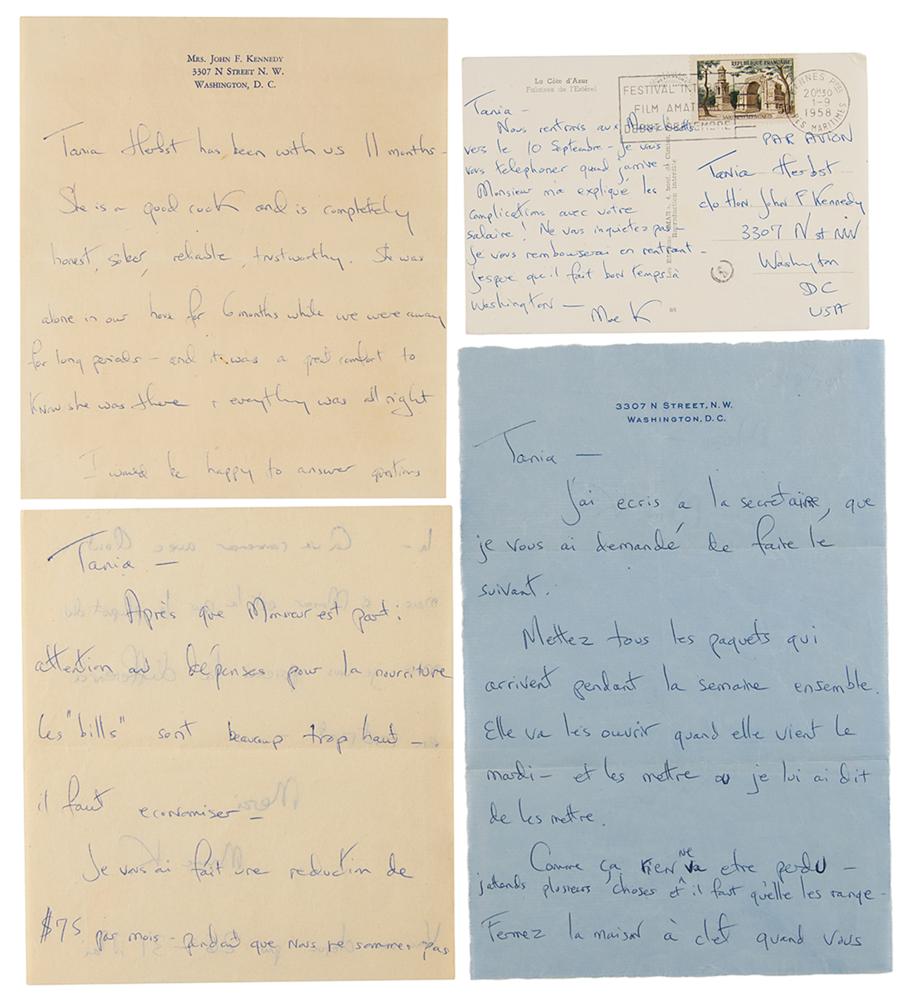 MRS. JOHN F. KENNEDY
3307 N STREET N. W.
WASHINGTON, D. C.
Tania Herbst has been with us 11 months -
She is a good cook and is completely
honest, sober, reliable, trustworthy. She was
alone in our house for 6 months while we were away
for long periods - and it was a great comfort to
know she was there & everything was all right
I would be happy to answer questions
La Côte d'Azur
FESTIVAL INT
FILM AMAT
SEPTEMBRE
REPUBLIQUE FRANÇAISE
CANNES
20H30
1-9
1958
ALPES MARITIMES
Tania -
Nous rentrons aux
vers le 10 Septembre - je vous
vais telephoner quand j'arrive
Monsieur m'a expliqué les
complications avec votre
salaire! Ne vous inquietez pas
je vous rembourserai en rentrant -
j'espere qu'il fait bon temps à
Washington -
Mme K
Reproduction interdite
PAR AVION
Tania Herbst
c/o Hon. John F Kennedy
3307 N st NW
Washington
DC
USA
Tania -
Après que Monsieur est parti
attention aux depenses pour la nourriture
Les "bills" sont beaucoup trop haut -
il faut economiser -
Je vous ai fait une reduction de
$75 par mois - pendant que nous ne sommes pas
3307 N STREET, N. W.
WASHINGTON, D. C.
Tania -
J'ai ecris a la secretaire, que
je vous ai demandé de faire le
suivant.
Mettez tous les paquets qui
arrivent pendant la semaine ensemble.
Elle va les ouvrir quand elle vient le
mardi - et les mettre ou je lui ai dit
de les mettre.
Comme ça rien ne va etre perdu -
j'attends plusieurs choses et il faut qu'elle les range -
Fermez la maison à clef quand vous